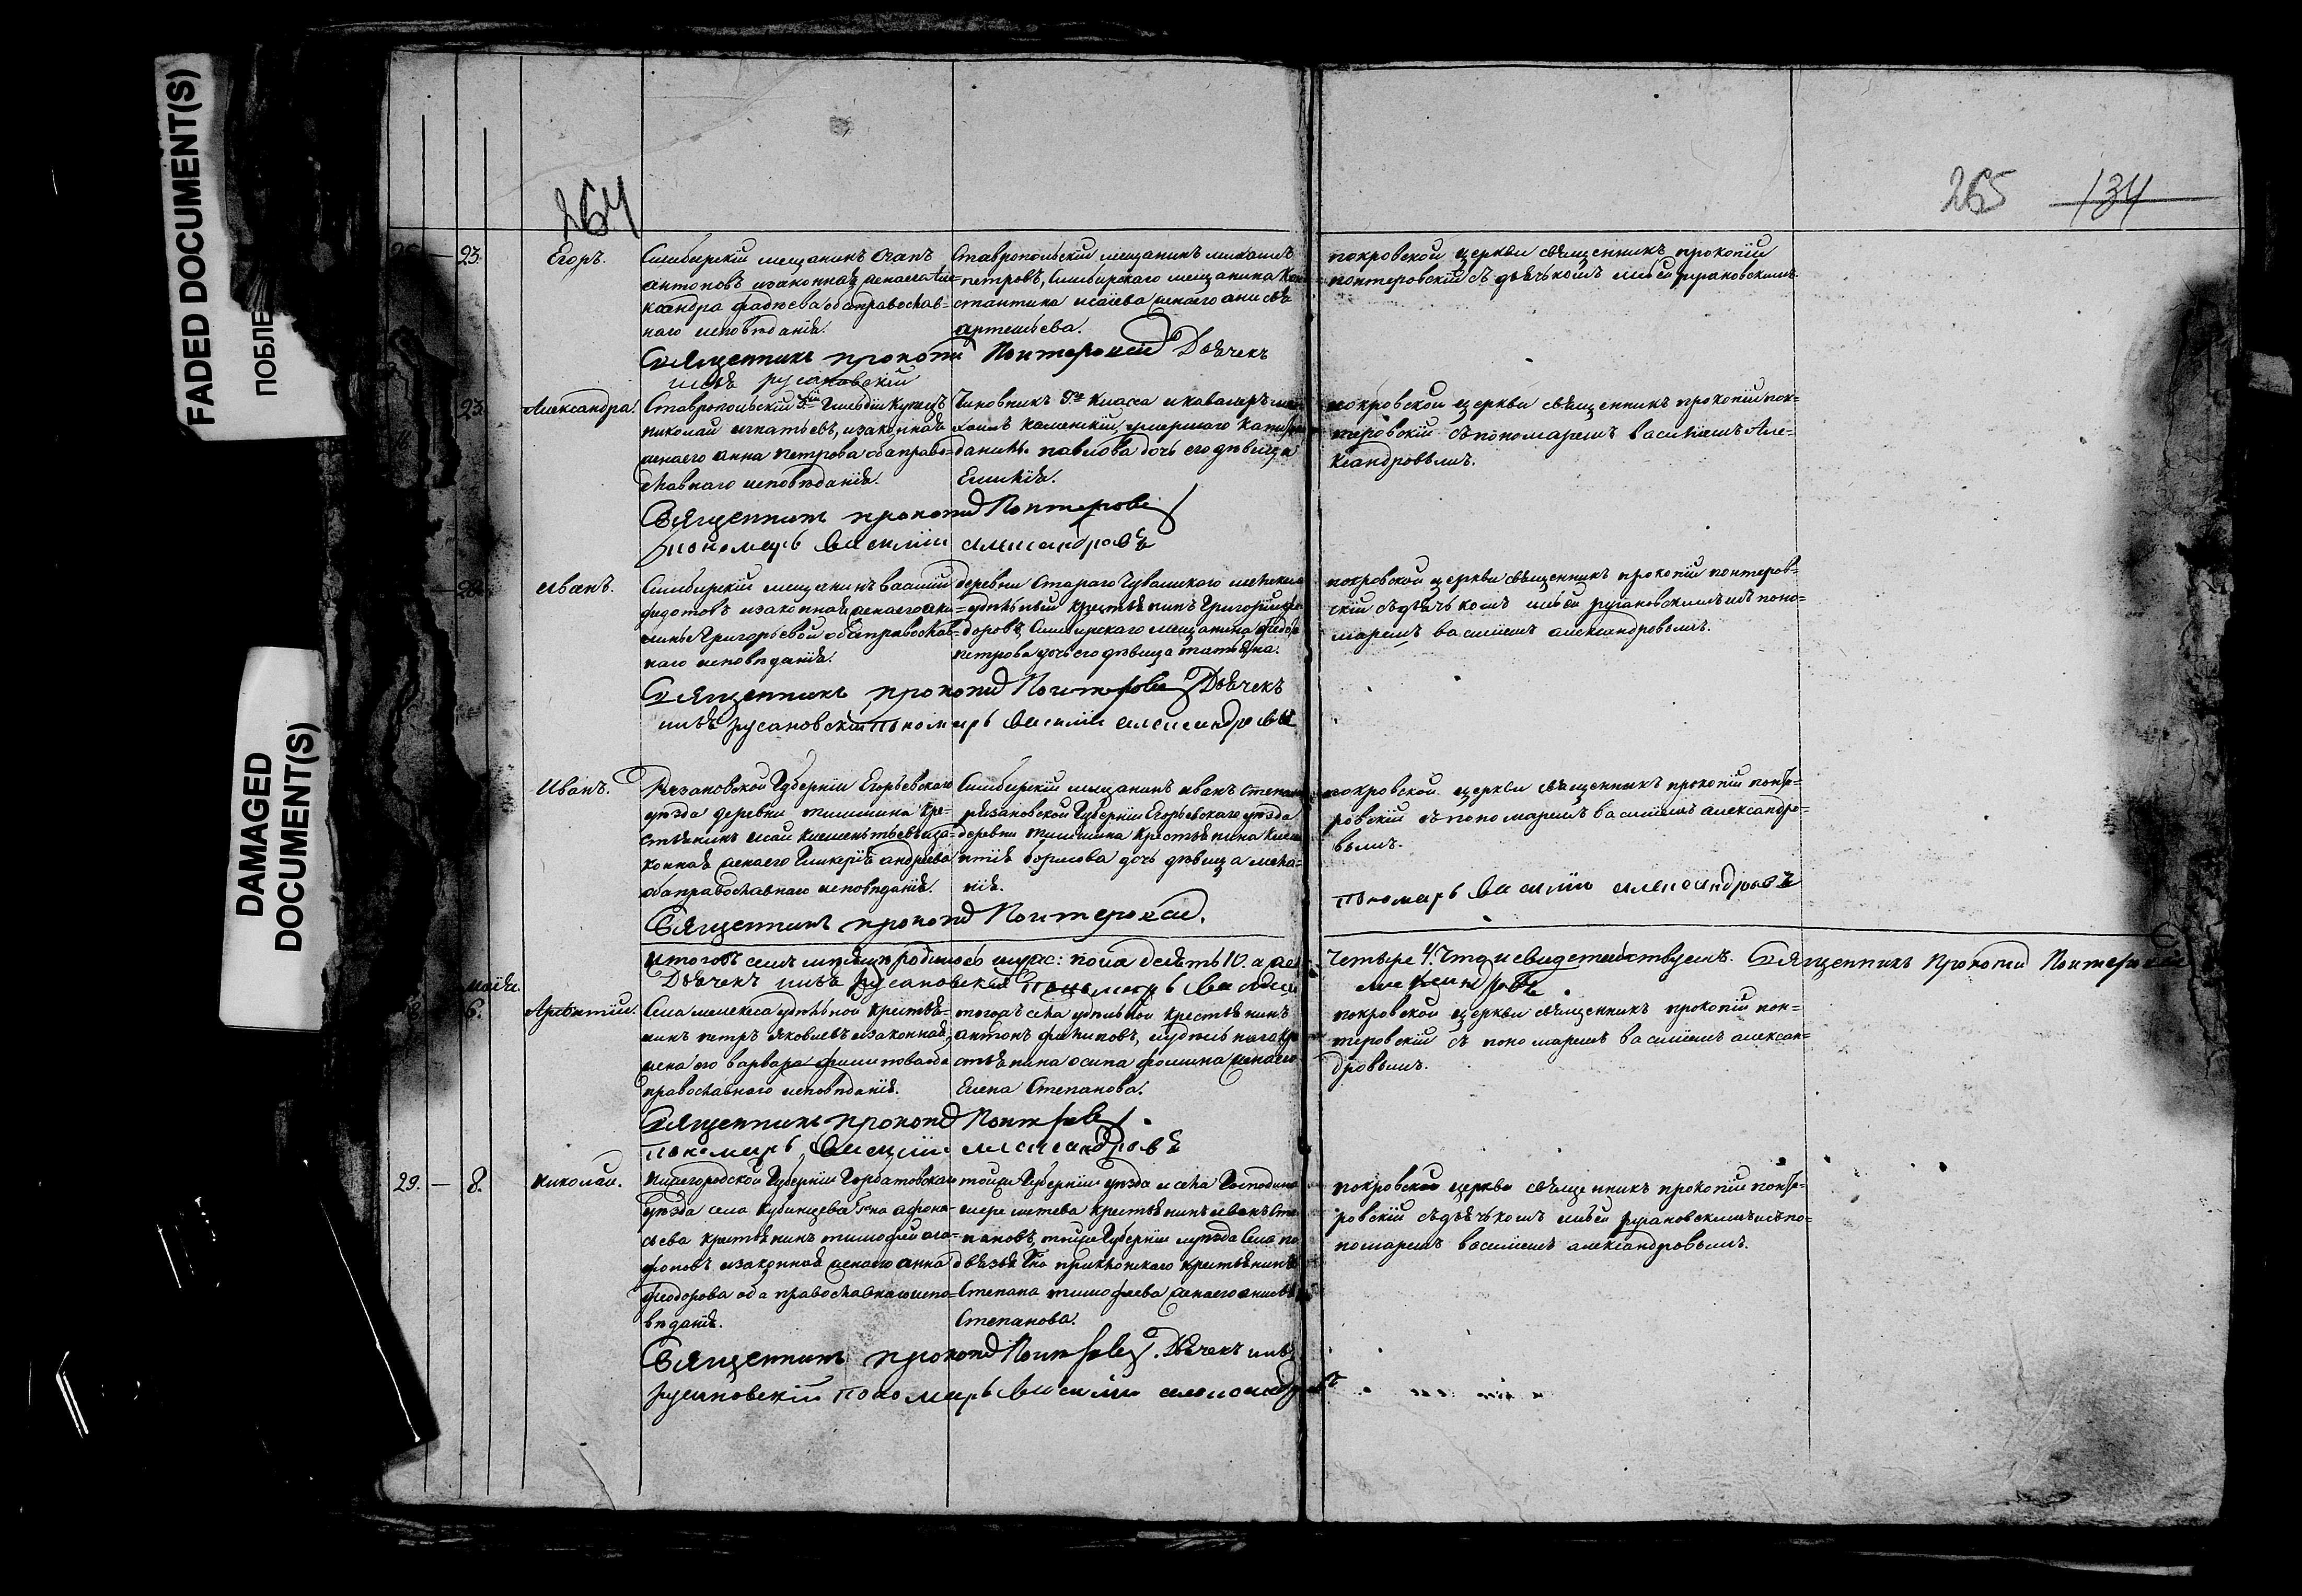 FADED DOCUMENT(S)
ПОБЛЕ
DAMAGED
DOCUMENT(S)
264
265 134
23. Егоръ.
Симбирскїй мещанинъ
антоновъ изаконная женаего Але=
ксандра фадѣева обаправослав=
наго исповѣданїя.
Ставропольскїй мещанинъ михаилъ
петровъ, Симбирскаго мещанина Кон
стантина исаїева женаего анисья
артемьева.
покровской церкви священникъ прокопїй
понтеровскїй съ дьячькомъ ильей русановскимъ
Священникъ прокопїй Понтеровскїй Дьячекъ
илья русановскїй
23. Александра.
Ставропольскїй 3й Гильдїи Купецъ
николай игнатьевъ, изаконная
женаего анна Петрова обаправо=
славнаго исповѣданїя.
Чиновникъ 9го класса и кавалеръ ми
хаилъ каменскїй, умершаго
данилы павлова дочь его дѣвица
Емилїя.
покровской церкви священникъ прокопїй пон=
теровскїй съпономаремъ василїемъ Але=
ксандровымъ.
Священникъ прокопїй Понтеровскїй
пономарь василїй александровъ
Иванъ.
Симбирскїй мещанинъ василїй
федотовъ изаконная женаего аку=
лина Григорьевой обаправослав=
наго исповѣданїя.
деревни Стараго Чувашского мелекеса
удѣльный крестьянинъ Григорїй фе
доровъ, Симбирскаго мещанина федора
петрова дочь его дѣвица татьяна.
покровской церкви священникъ прокопїй понтеров=
скїй съдьячькомъ ильей русановскимъ исъ поно=
маремъ василїемъ александровымъ.
Священникъ прокопїй Понтеровскїй Дьячекъ
илья русановскїй пономарь василїй александровъ
Иванъ.
Рязановской Губернїи Егорьевскаго
уѣзда деревни тимшина кре=
стьянинъ исай климентьевъ иза=
конная женаего Гликерїя андреева
обаправославнаго исповѣданїя.
Симбирскїй мещанинъ иванъ степано
рязановской Губернїи Егорьевскаго уѣзда
деревни тимшина крестьянина клем
нтїя борисова дочь дѣвица мела=
нїя.
покровской церкви священникъ прокопїй понте=
ровскїй съпономаремъ василїемъ александро=
вымъ.
Священникъ прокопїй Понтеровскїй.
пономарь василїй александровъ
итого въ семъ родилось муж: пола десять 10. а жен
четыре 4. Что и свидетельствуемъ. Священникъ Прокопїй Понтеровскїй
Дьячекъ илья русановскїй пономарь василїй
александровъ.
маїя.
6. Арсентїй.
Села мелекеса удѣльной крестья=
нинъ петръ яковлевъ изаконная
жена его варвара филипова оба
православного исповѣданїя.
тогожъ села удѣльной крестьянинъ
антонъ филиповъ, иудѣльнаго кре
стьянина осипа фомина женаего
Елена Степанова.
покровской церкви священникъ прокопїй пон=
теровскїй съ пономаремъ василїемъ алексан=
дровымъ.
Священникъ прокопїй Понтеровскїй.
пономарь василїй александровъ
29. — 8. николай.
Нижегородской Губернїи Горбатовскаго
уѣзда села кубинцева Гна афона=
сьева крестьянинъ тимофей ага=
фоновъ изаконная женаего анна
феодорова оба православнаго испо=
вѣданїя.
тойже Губернїи уѣзда и села Господина
шереметева крестьянинъ иванъ Сте
пановъ, тойже Губернїи иуѣзда Села
Гна приклонскаго крестьянина
Степана тимофеева женаего анисья
Степанова.
покровской церкви священникъ прокопїй понте=
ровскїй съдьячькомъ ильей русановскимъ исъпо=
номаремъ василїемъ александровымъ.
Священникъ прокопїй Понтеровскїй. Дьячекъ илья
русановскїй пономарь василїй александровъ